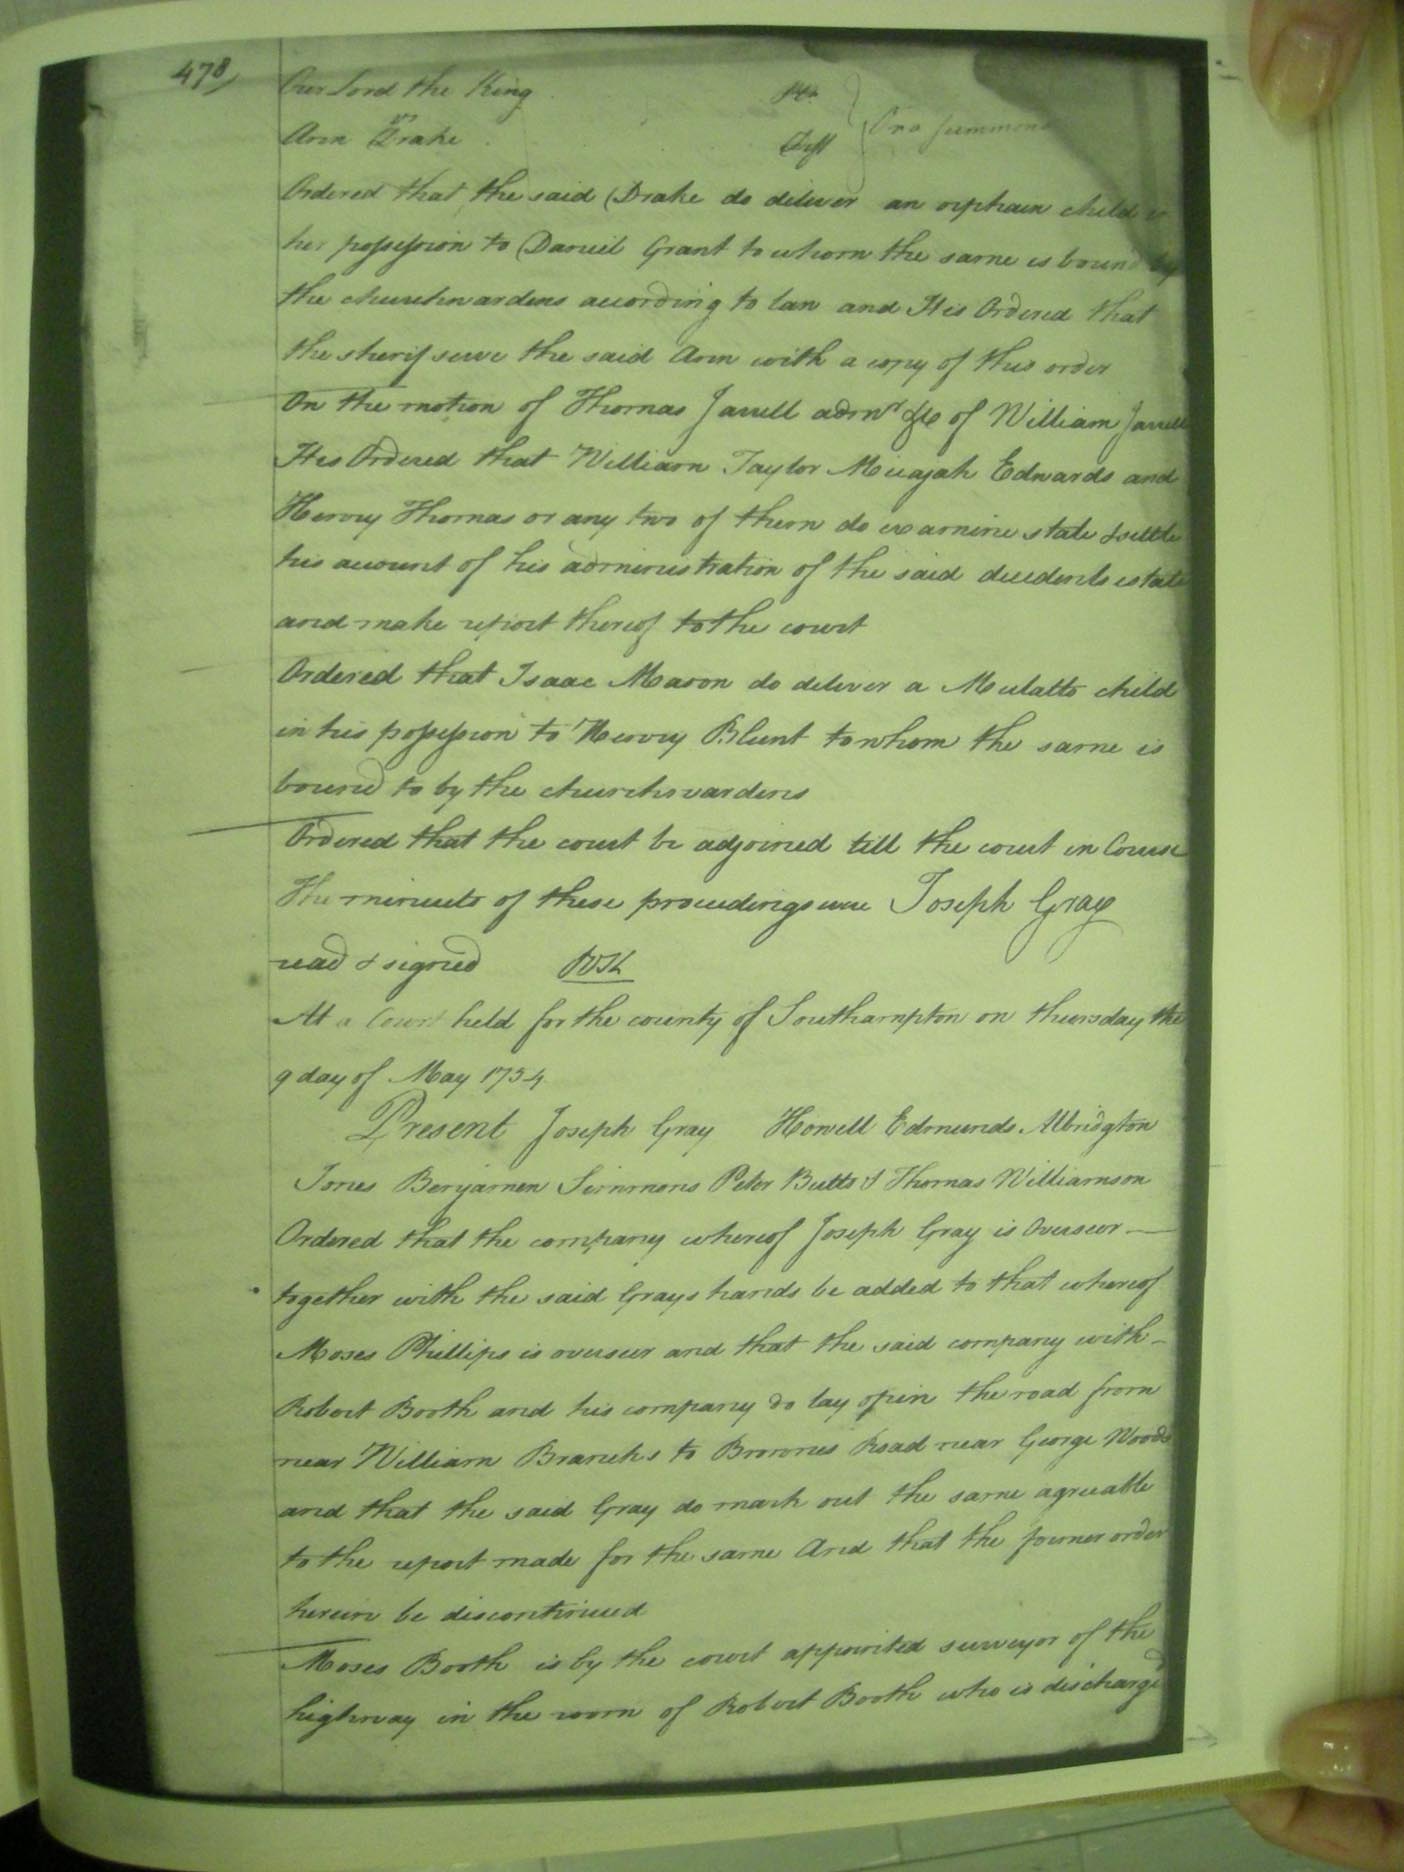 478
Our Lord the King Plt.
vs } On a summons
Ann Drake Deft
Ordered that the said Drake do deliver an orphan child in
her possession to Daniel Grant to whom the same is bound by
the churchwardens according to law and Itis Ordered that
the sherif serve the said Ann with a copy of this order
On the motion of Thomas Jarrell admr &c of William Jarrell
Itis Ordered that William Taylor Micajah Edwards and
Henry Thomas or any two of them do examine state & settle
his account of his administration of the said decedents estate
and make report thereof to the court
Ordered that Isaac Mason do deliver a Mulatto child
in his possession to Henry Blunt to whom the same is
bound to by the churchwardens
Ordered that the court be adjoined till the court in Course
The minuets of these proceedings were Joseph Gray
read & signed
At a Court held for the county of Southampton on thursday the
9 day of May 1754
Present Joseph Gray Howell Edmunds Albridgton
Jones Benjamen Simmons Peter Butts & Thomas Williamson
Ordered that the company whereof Joseph Gray is Overseer
together with the said Grays hands be added to that whereof
Moses Phillips is overseer and that the said company with
Robert Booth and his company do lay open the road from
near William Branchs to Brownes Road near George Woods
and that the said Gray do mark out the same agreeable
to the report made for the same And that the former order
herein be discontinued
Moses Booth is by the court appointed surveyor of the
highway in the room of Robert Booth who is discharged